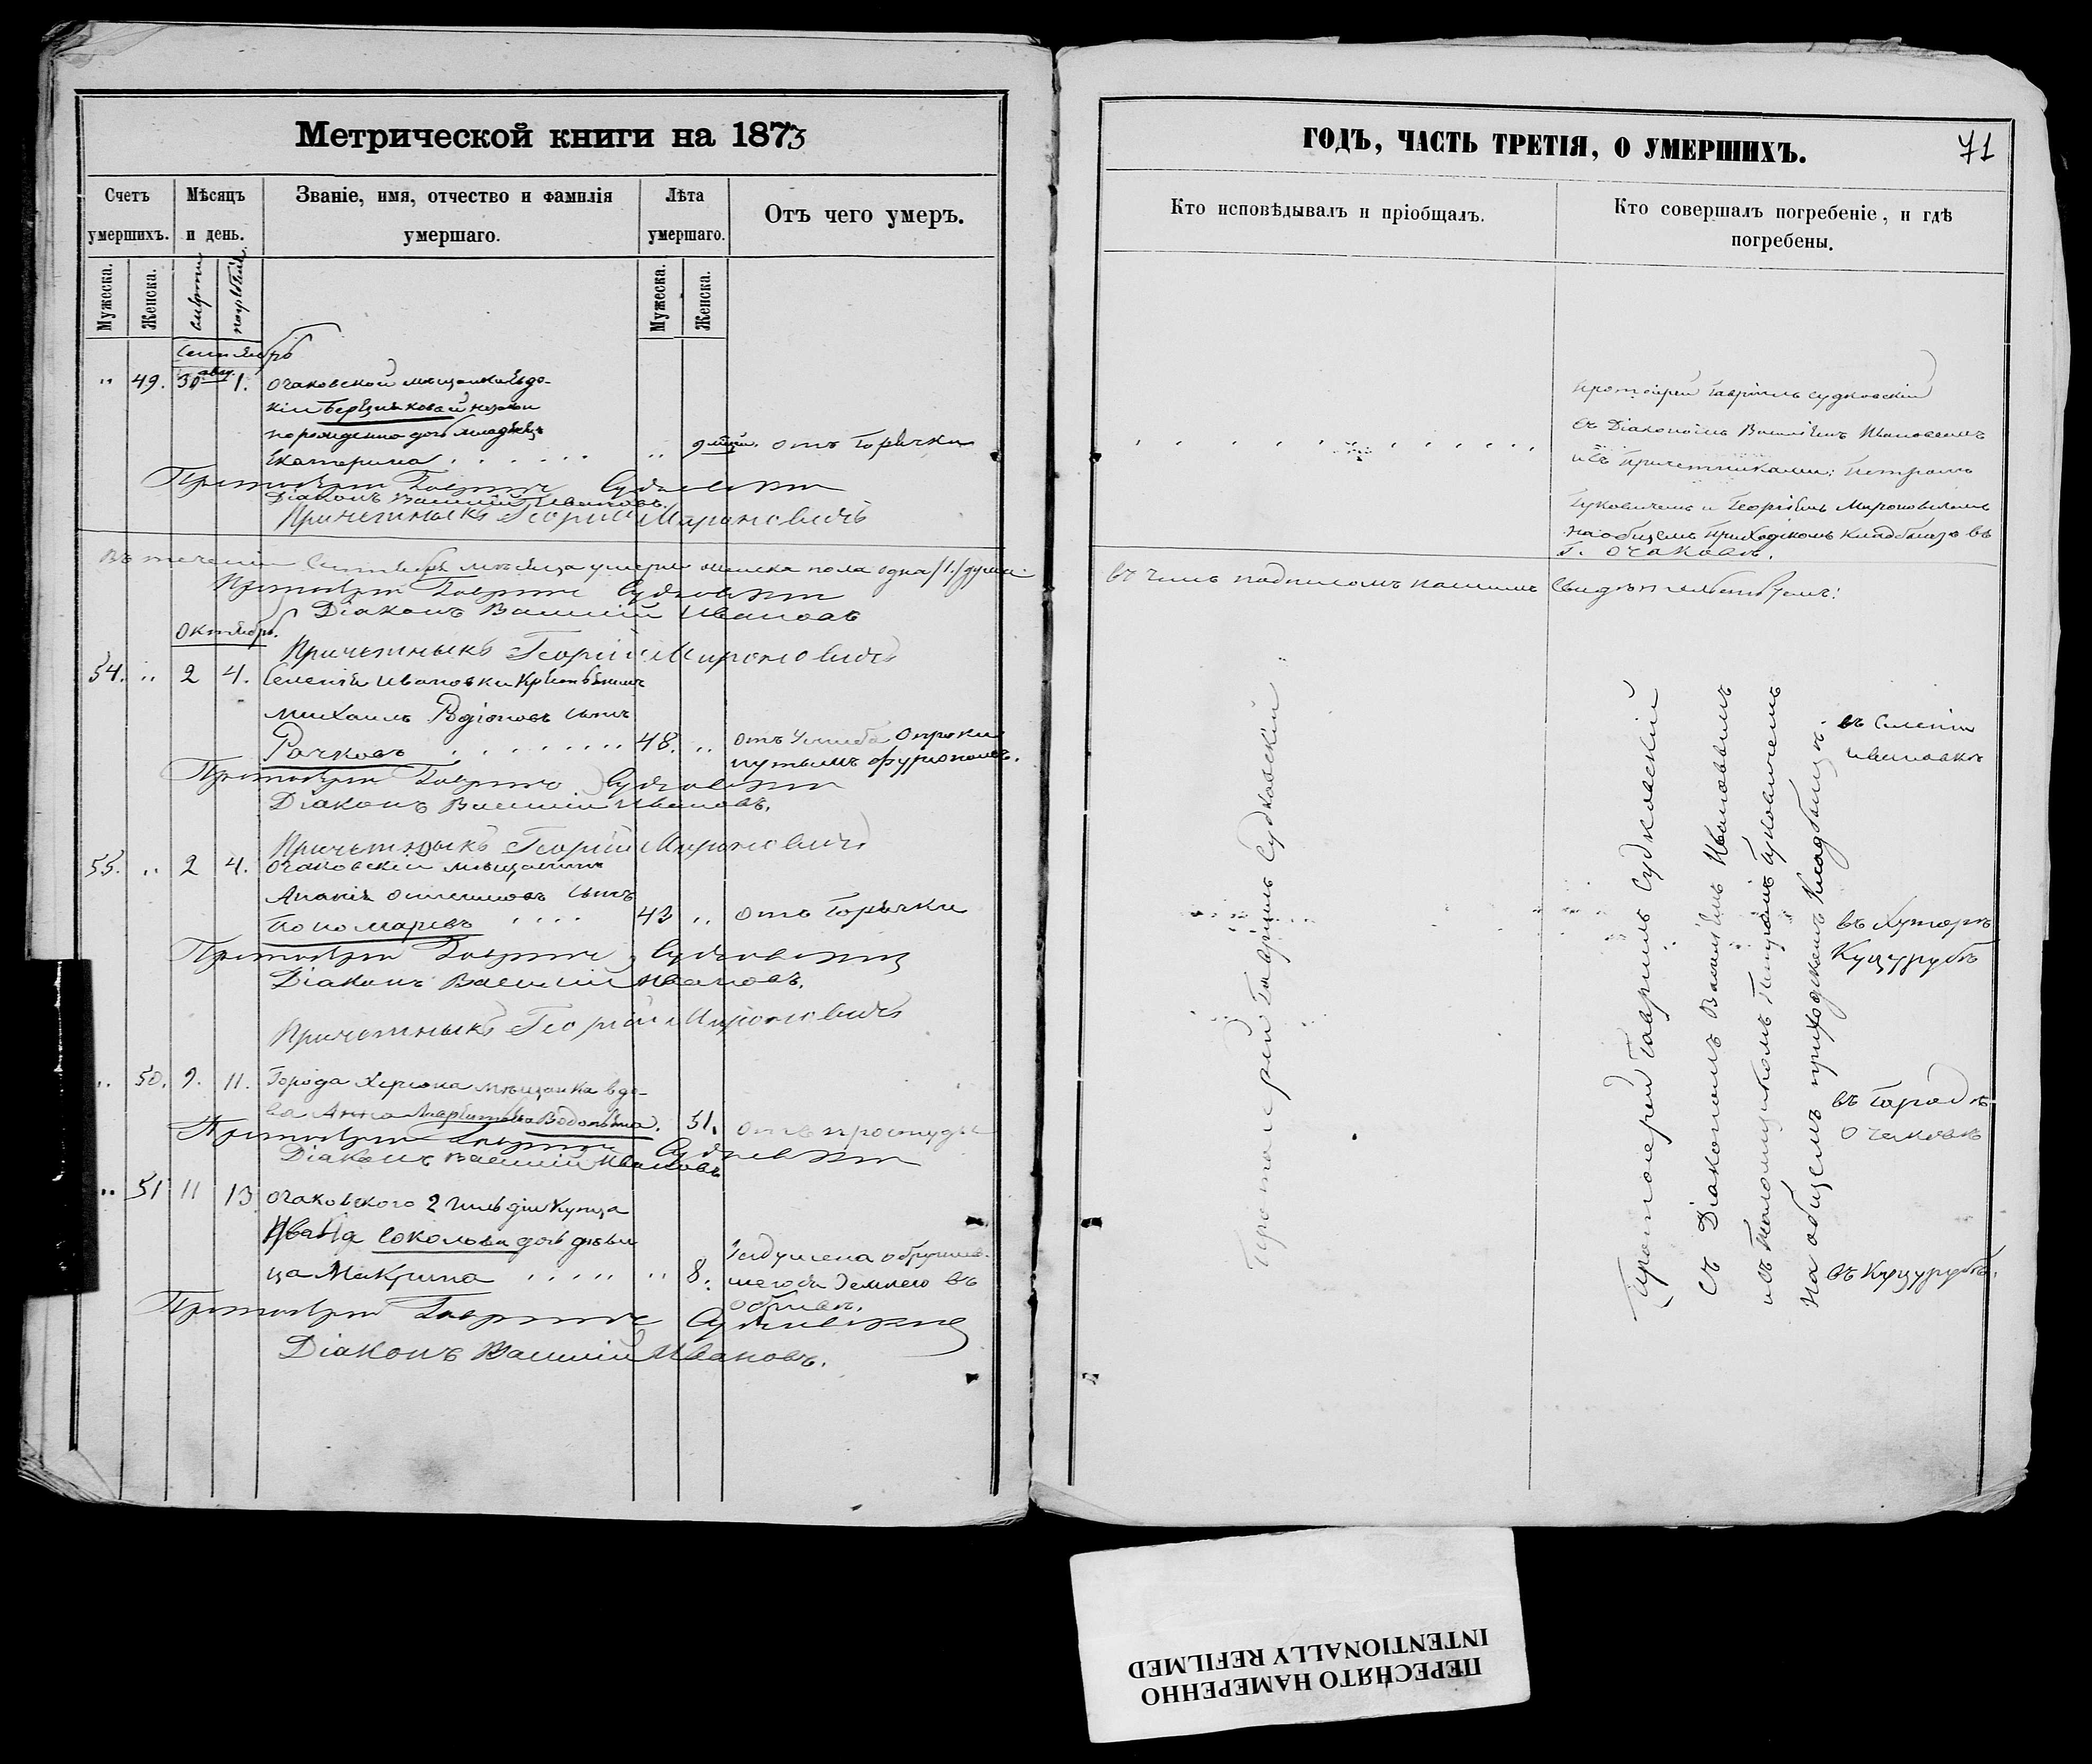 Метрической книги на 1873
Счетъ умершихъ.
Мѣсяцъ и день.
Званіе, имя, отчество и фамилія умершаго.
Лѣта умершаго.
Отъ чего умеръ.
Мужеска.
Женска.
смерти
погребенія
Мужеска.
Женска.
Сентябрь
" 49. 30 авг. 1. Очаковской мѣщанки Евдо-
кіи
дочь младенецъ
Екатерина . . . . . . " 9 отъ Горячки
Протоіерей Гавріилъ Судковскій
Діаконъ Василій Ивановъ.
Причетникъ Георгій Мироновичъ
Въ теченіи Сентября мѣсяца умерло женска пола одна /1./ душа.
Протоіерей Гавріилъ Судковскій
Діаконъ Василій Ивановъ
Октябрь.
Причетникъ Георгій Мироновичъ
54. " 2 4. Селенія Ивановки Крестьянинъ
Михаилъ Родіоновъ сынъ
Рачковъ . . . . . . . . 48. " отъ Ушиба Опроки
нутымъ фургономъ.
Протоіерей Гавріилъ Судковскій
Діаконъ Василій Ивановъ.
Причетникъ Георгій Мироновичъ
55. " 2 4. Очаковскій мѣщанинъ
Ананія сынъ
Пономаревъ . . . . 43 " отъ Горячки
Протоіерей Гавріилъ Судковскій
Діаконъ Василій Ивановъ.
Причетникъ Георгій Мироновичъ
" 50. 9. 11. Города Херсона мѣщанка вдо-
ва Анна 51. отъ простуды
Протоіерей Гавріилъ Судковскій
Діаконъ Василій Ивановъ
" 51 11 13 Очаковского 2 гильдіи Купца
Ивана Соколова дочь дѣви
ца Макрина . . . . . " 8. Задушена обрушив-
шегося Землею въ
обрывѣ.
Протоіерей Гавріилъ Судковскій
Діаконъ Василій Ивановъ.
ГОДЪ, ЧАСТЬ ТРЕТІЯ, О УМЕРШИХЪ.
71
Кто исповѣдывалъ и пріобщалъ.
Кто совершалъ погребеніе, и гдѣ погребены.
Протоіерей Гавріилъ Судковскій
съ Діакономъ Василіемъ Ивановымъ
и съ причетниками: Петромъ
Гуковичемъ и Георгіемъ Мироновичемъ
на общемъ приходскомъ кладбищѣ въ
г. Очаковѣ.
въ чемъ подписомъ нашимъ Свидѣтельствуемъ:
Протоіерей Гавріилъ Судковскій
Протоіерей Гавріилъ Судковскій
съ Діакономъ Василіемъ Ивановымъ
и съ Петромъ Гуковичемъ
на общемъ приходскомъ Кладбищѣ.
въ Селеніи
Ивановкѣ
въ Хуторѣ
Куцурубѣ
въ Городѣ
Очаковѣ
въ Куцурубѣ.
ПЕРЕСНЯТО НАМЕРЕННО
INTENTIONALLY REFILMED